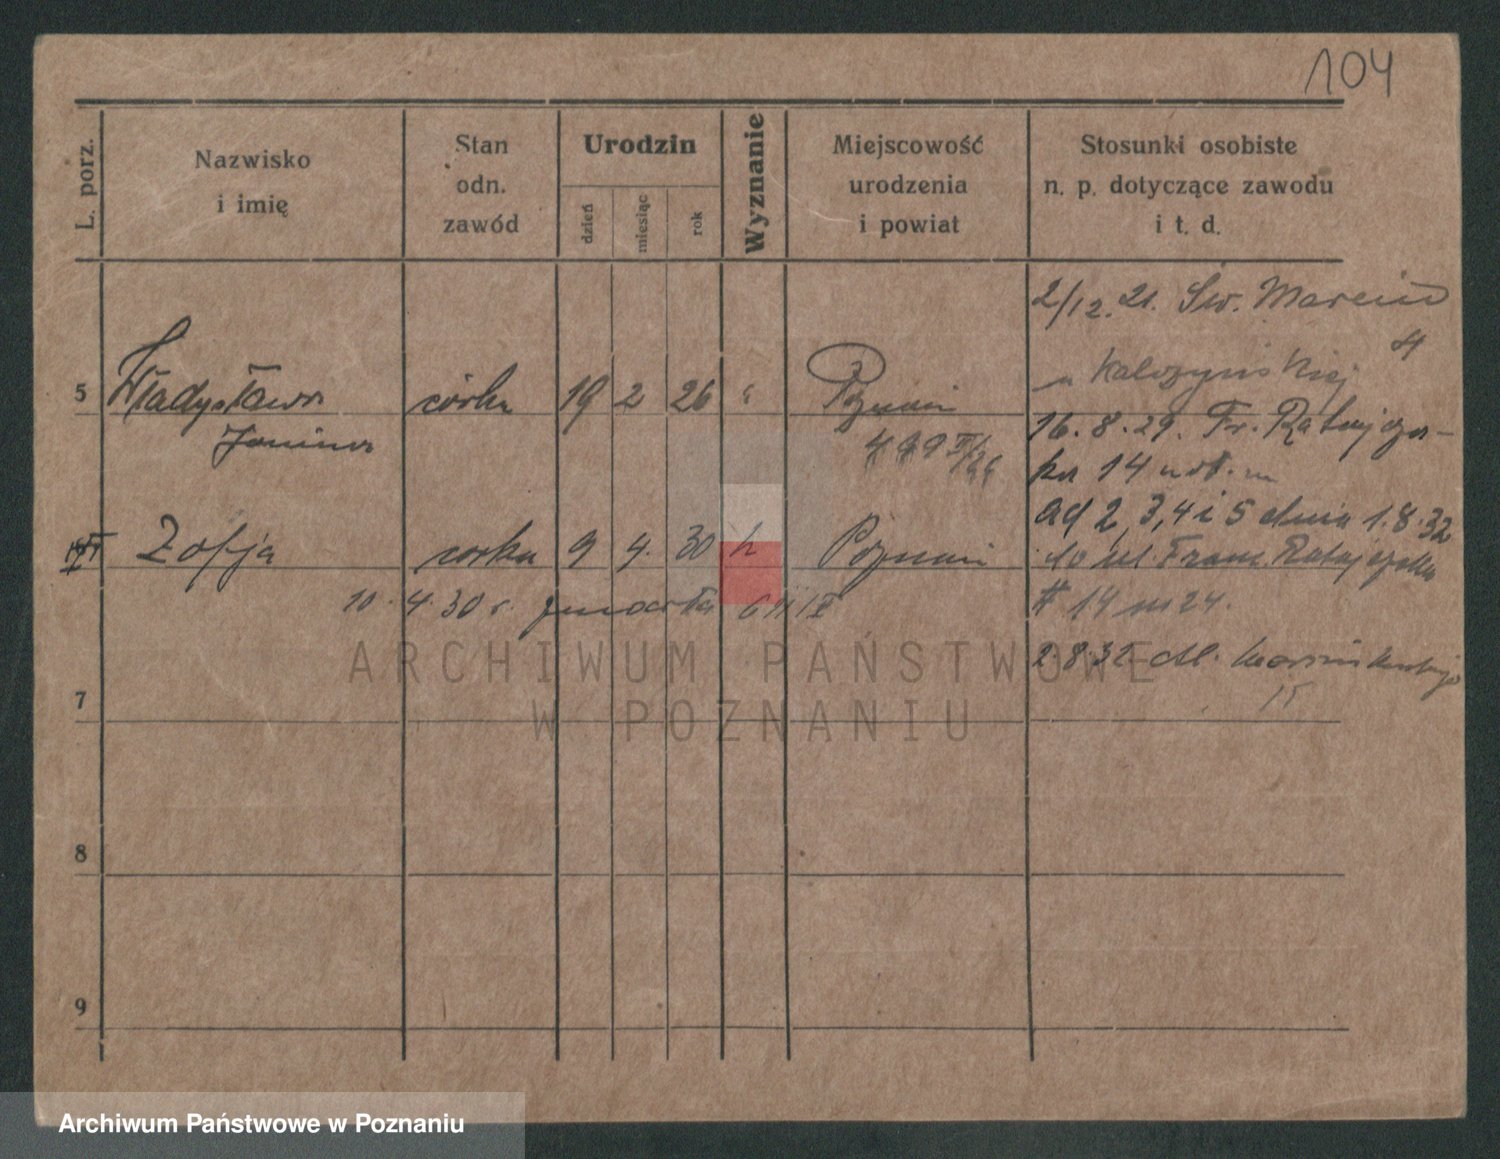 104
L. porz.
Nazwisko
i imię
Stan
odn.
zawód
Urodzin
dzień
miesiąc
rok
Wyznanie
Miejscowość
urodzenia
i powiat
Stosunki osobiste
n. p. dotyczące zawodu
i t. d.
2/12. 21. Św. Marcin
4
5 Władysława córka 19 2 26 " Poznań
Janina
16. 8. 29. Fr. Ratajcza-
ka 14
ad 2, 3, 4 i 5 dnia 1. 8. 32
Zofja córka 9 4. 30 Poznań
Franc. Ratajczaka
# 14 m 24.
10. 4. 30 r. zmarła
2. 8. 32
ARCHIWUM PAŃSTWOWE
W POZNANIU
7
8
9
Archiwum Państwowe w Poznaniu